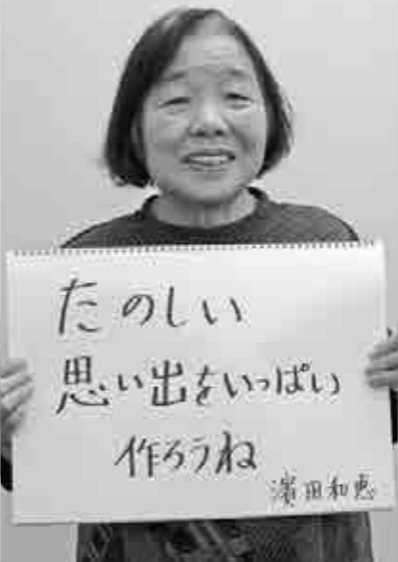 たのしい
思い出をいっぱい
作ろうね
濱田和恵